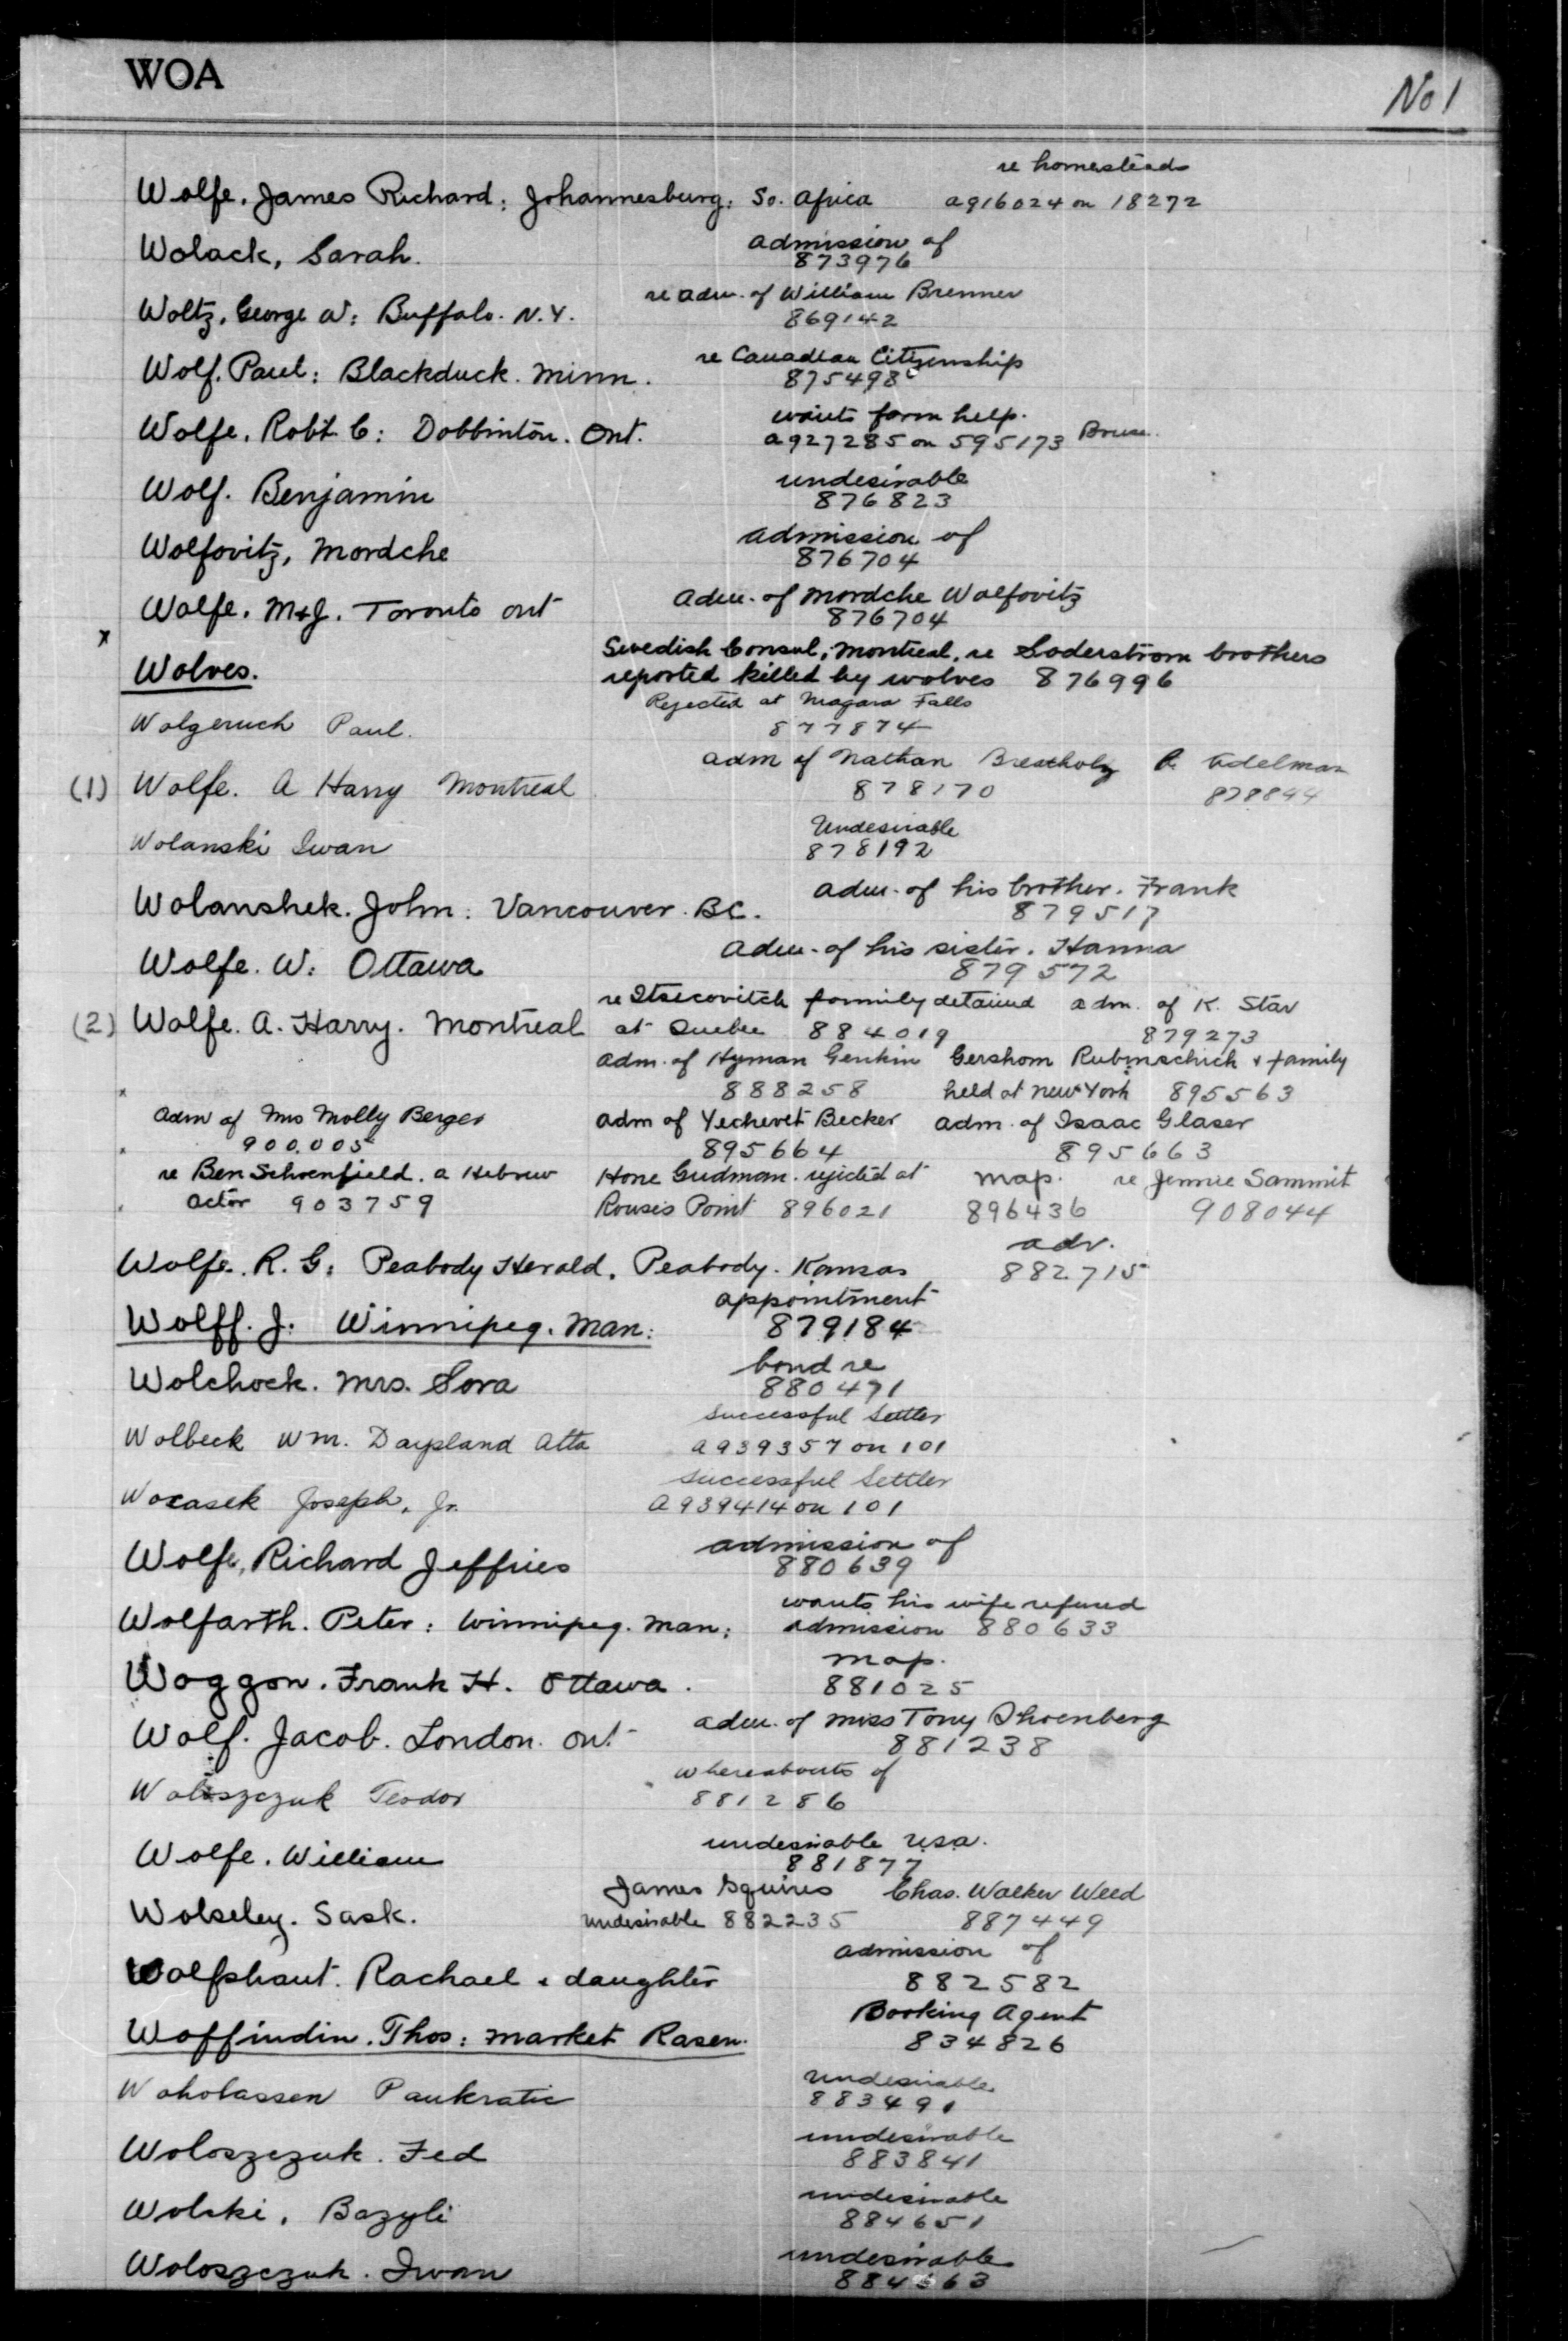 WOA
No 1
re homesteads
Wolfe, James Richard: Johannesburg: So. Africa a916024 on 18272
admission of
Wolack, Sarah. 873976
re adm. of William Brenner
Woltz, George W: Buffalo. N.Y. 869142
re Canadian Citizenship
Wolf, Paul: Blackduck. Minn. 875498
wants farm help.
Wolfe, Robt C: Dobbinton. Ont. a927285 on 595173 Bruce.
undesirable
Wolf. Benjamin 876823
admission of
Wolfovitz, Mordche 876704
adm. of Mordche Wolfovitz
Wolfe. M&J. Toronto Ont 876704
x
Swedish Consul, Montreal, re Soderstrom brothers
Wolves. reported killed by wolves 876996
Rejected at Niagara Falls
Wolgeruch Paul. 877874
adm of Nathan Brestholz R. Edelman
(1) Wolfe. A Harry Montreal 878170 878844
Undesirable
Wolanski Iwan 878192
adm. of his brother. Frank
Wolanshek. John: Vancouver. BC. 879517
adm. of his sister. Hanna
Wolfe. W: Ottawa 879572
re Itsecovitch family detained adm. of K. Star
(2) Wolfe. A. Harry. Montreal at Quebec 884019 879273
adm. of Hyman Genkin Gershom Rubinschich & family
x 888258 held at New York 895563
adm of Mrs Molly Berger adm of Yechevet Becker adm. of Isaac Glaser
900.005 895664 895663
re Ben Schoenfield. a Hebrew Hone Gudman. rejected at map. re Jennie Sammit
actor 903759 Rouses Point 896021 896436 908044
adv.
Wolfe. R. G: Peabody Herald, Peabody. Kansas 882715
appointment
Wolff. J. Winnipeg. Man: 879184
bond re
Wolchock. Mrs. Sora 880471
Successful Settler
Wolbeck Wm. Daysland Alta a939357 on 101
Successful Settler
Wocasek Joseph, Jr. a939414 on 101
admission of
Wolfe, Richard Jeffries 880639
wants his wife refused
Wolfarth. Peter: Winnipeg. Man: admission 880633
map.
Woggon. Frank H. Ottawa. 881025
adm. of Miss Tony Shoenberg
Wolf. Jacob. London. Ont 881238
whereabouts of
Woloszczuk Teodor 881286
undesirable U.S.A.
Wolfe. William 881877
James Squires Chas. Walker Weed
Wolseley. Sask. undesirable 882235 887449
admission of
Wolfshaut. Rachael & daughter 882582
Booking Agent
Woffindin. Thos: Market Rasen. 834826
undesirable
Woholassen Pankratie 883491
undesirable
Woloszczuk. Fed 883841
undesirable
Wolski, Bazyli 884651
undesirable
Woloszczuk. Iwan 884663